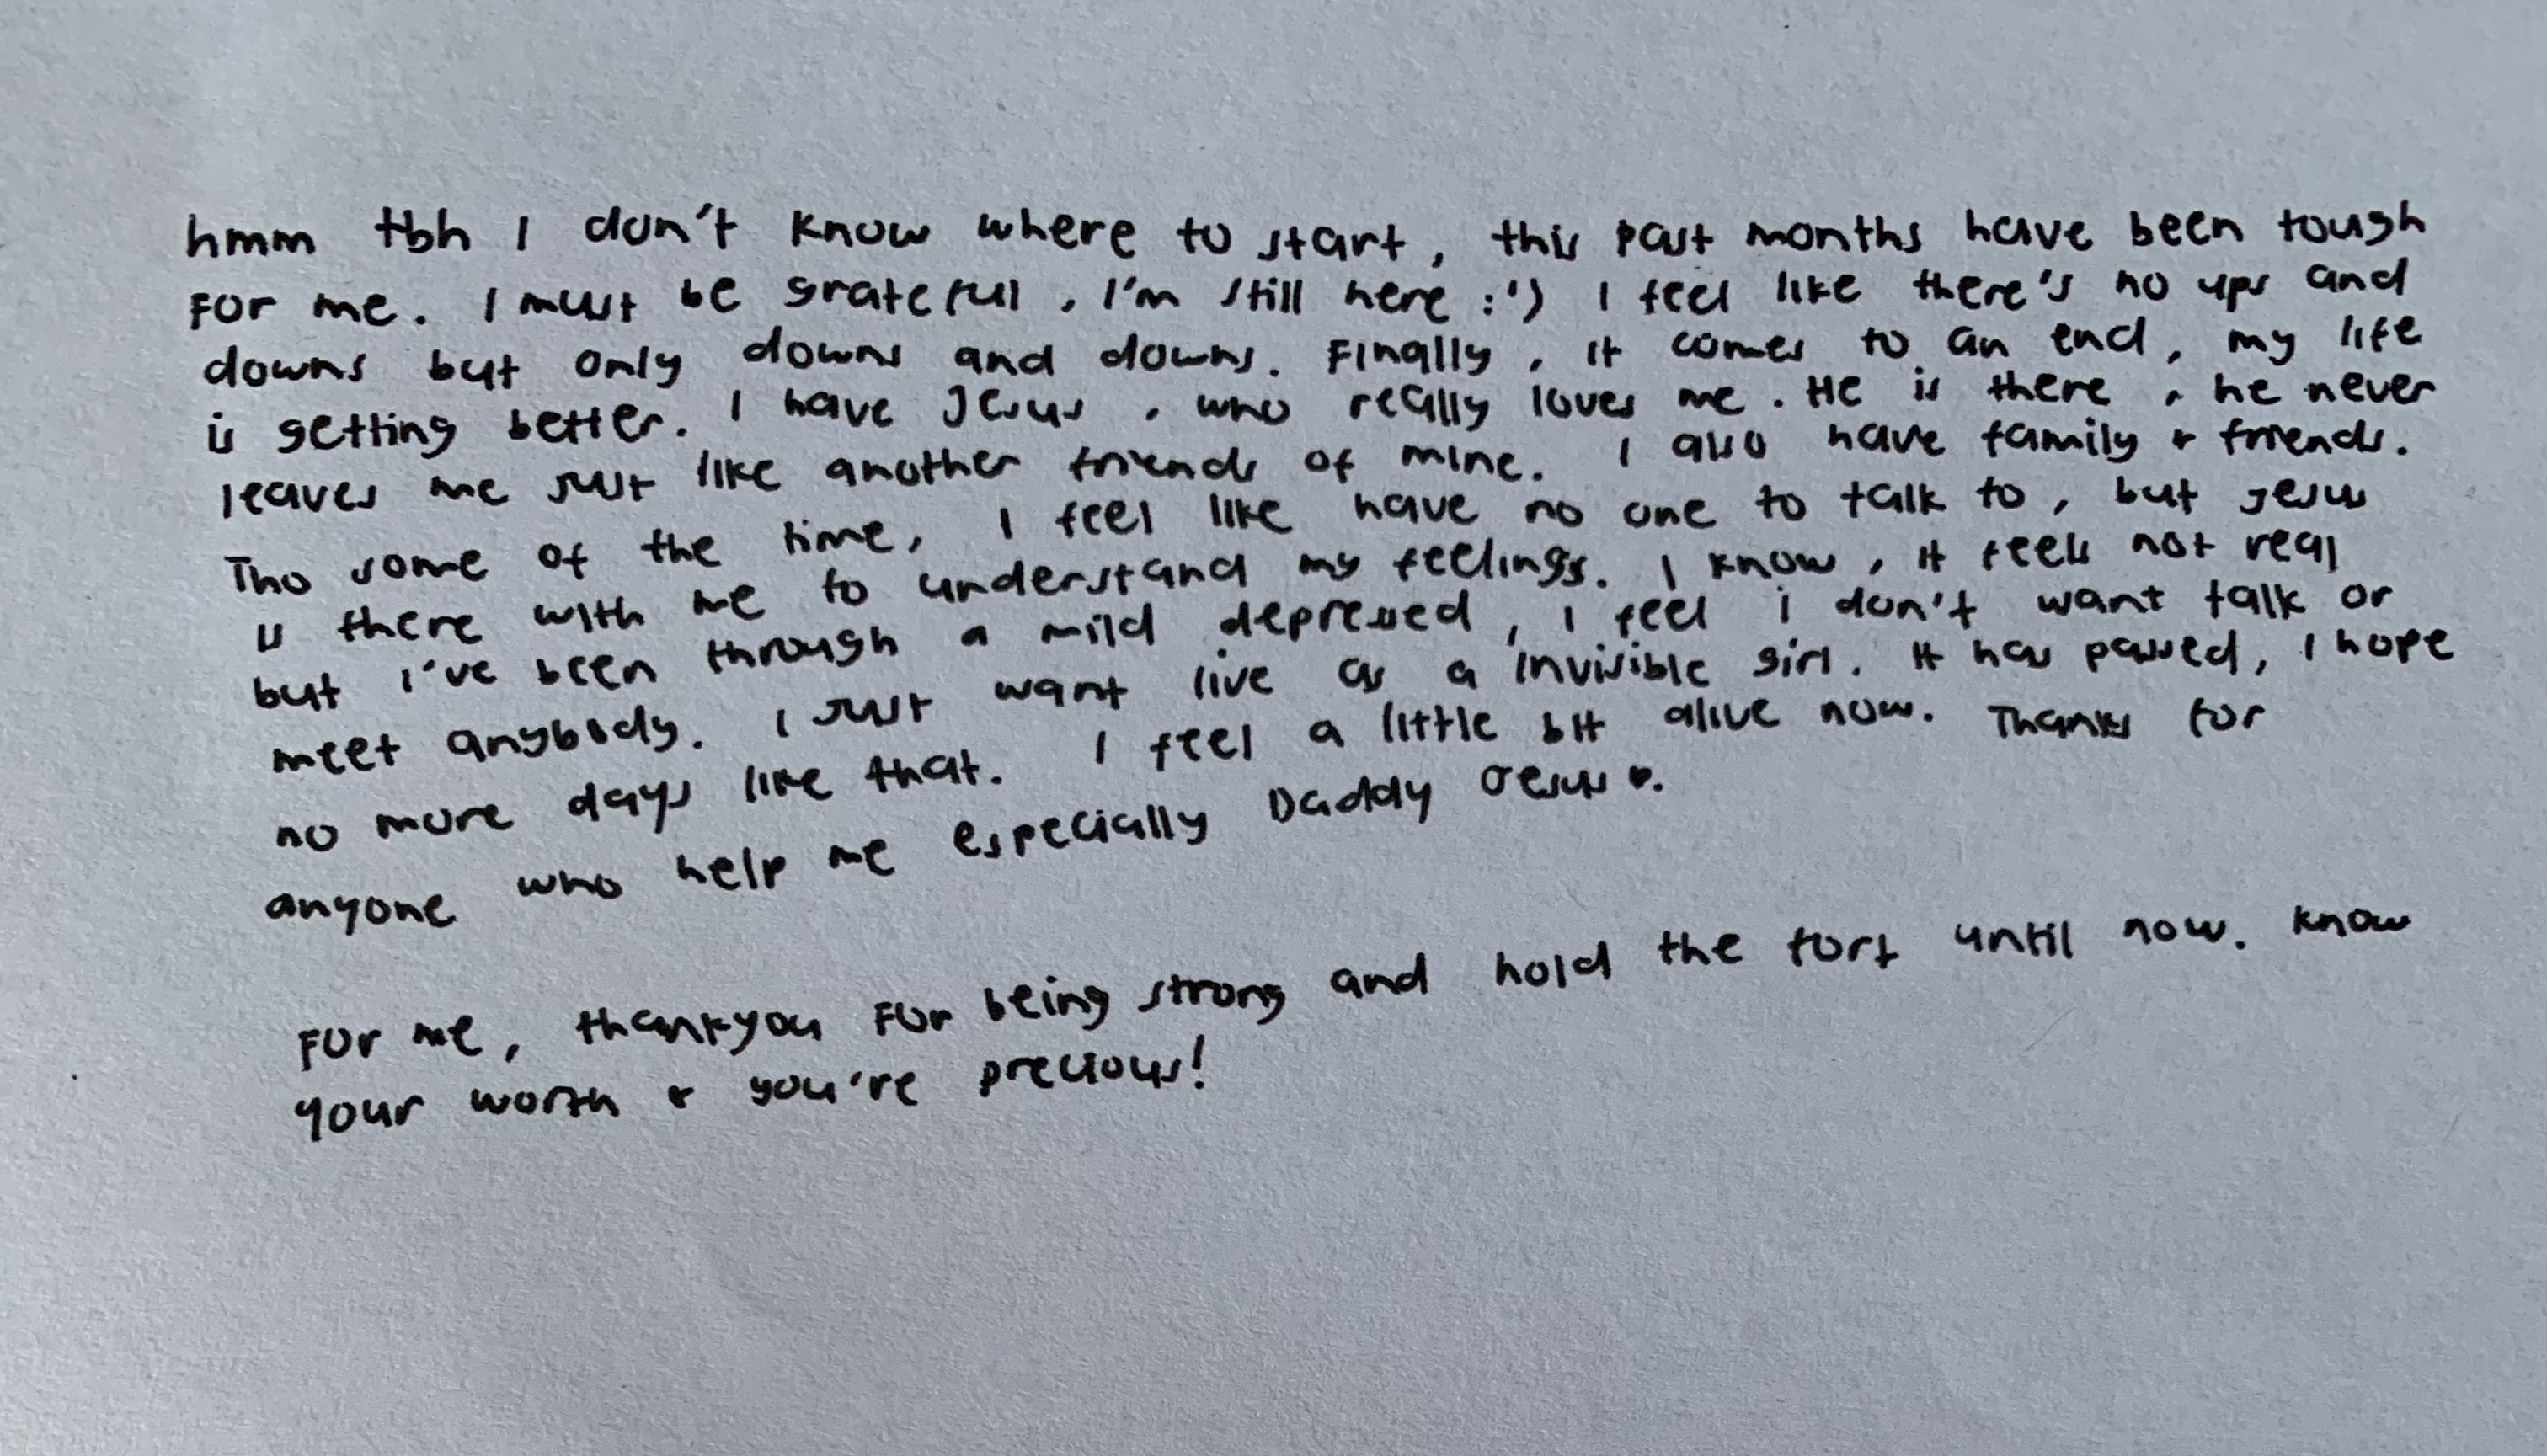 hmm tbh I don't know where to start, this past months have been tough
for me. I must be grateful, I'm still here :') I feel like there's no ups and
downs but only downs and downs. Finally, it comes to an end, my life
is getting better. I have Jesus, who really loves me. He is there, he never
leaves me just like another friends of mine. I also have family & friends.
Tho some of the time, I feel like have no one to talk to, but Jesus
is there with me to understand my feelings. I know, it feels not real
but I've been through a mild depressed, I feel i don't want talk or
meet anybody. I just want live as a invisible girl. It has passed, I hope
no more days like that. I feel a little bit alive now. Thanks for
anyone who help me especially Daddy Jesus ♥.
For me, thankyou for being strong and hold the fort until now. Know
your worth & you're precious!